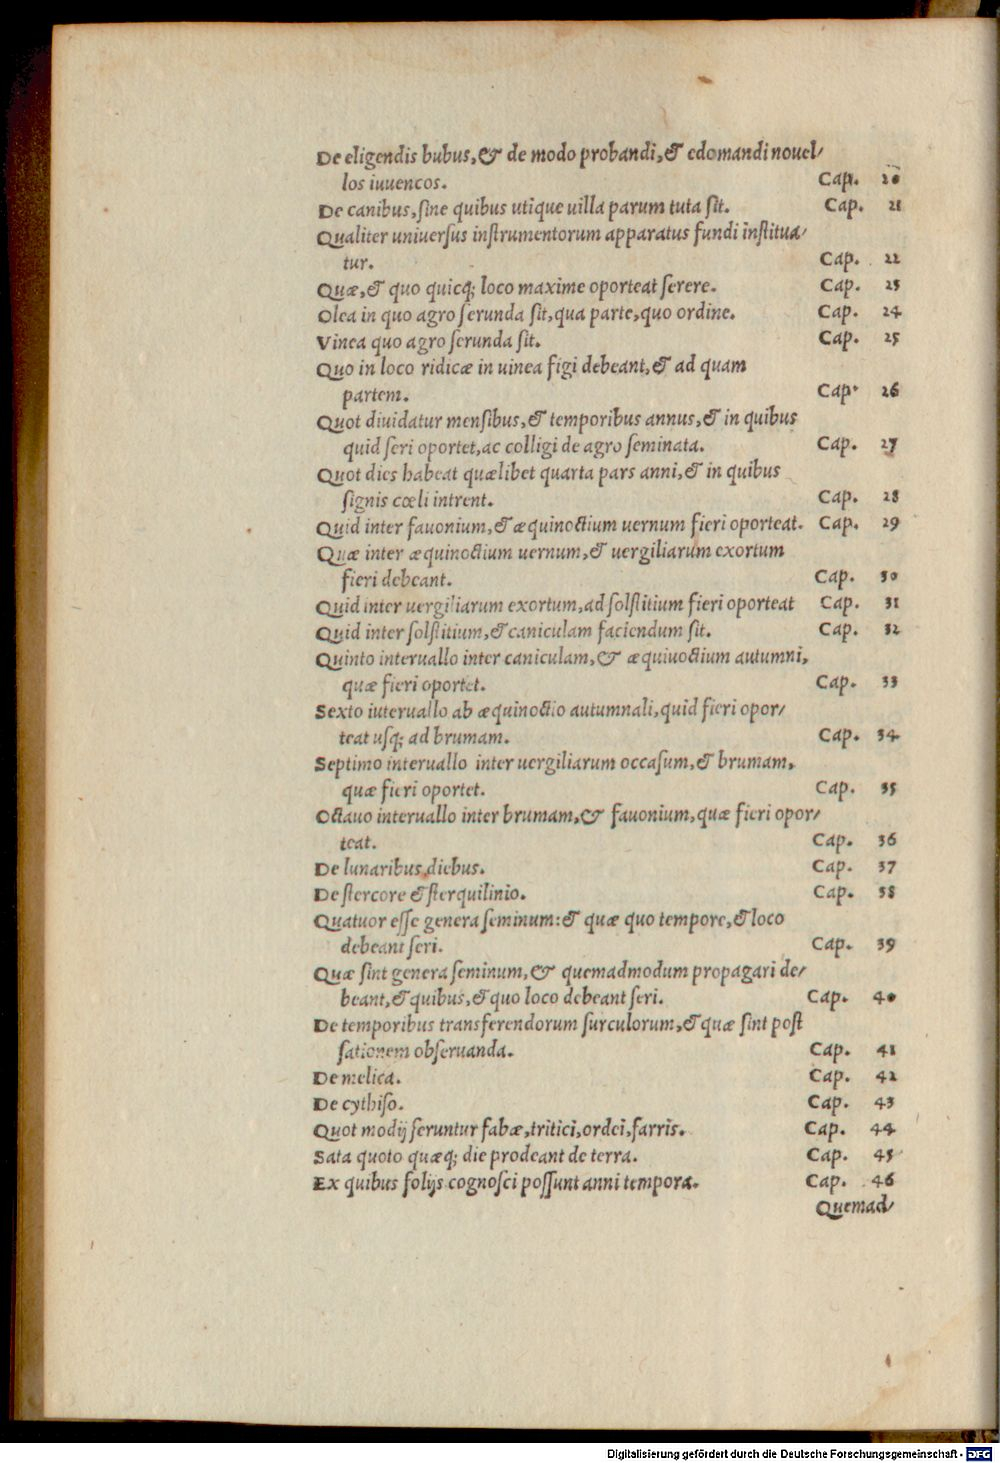 De eligendis bubus, & de modo probandi, & edomandi nouel/
los iuuencos. Cap. 20
De canibus, sine quibus utique uilla parum tuta sit. Cap. 21
Qualiter uniuersus instrumentorum apparatus fundi instituа/
tur. Cap. 22
Quæ, & quo quicq; loco maxime oporteat serere. Cap. 23
Olea in quo agro serunda sit, qua parte, quo ordine. Cap. 24
Vinea quo agro serunda sit. Cap. 25
Quo in loco ridicæ in uinea figi debeant, & ad quam
partem. Cap. 26
Quot diuidatur mensibus, & temporibus annus, & in quibus
quid seri oportet, ac colligi de agro seminata. Cap. 27
Quot dies habeat quælibet quarta pars anni, & in quibus
signis cœli intrent. Cap. 28
Quid inter fauonium, & æquinoctium uernum fieri oporteat. Cap. 29
Quæ inter æquinoctium uernum, & uergiliarum exortum
fieri debeant. Cap. 30
Quid inter uergiliarum exortum, ad solstitium fieri oporteat Cap. 31
Quid inter solstitium, & caniculam faciendum sit. Cap. 32
Quinto interuallo inter caniculam, & æquiuoctium autumni,
quæ fieri oportet. Cap. 33
Sexto iuteruallo ab æquinoctio autumnali, quid fieri opor/
teat usq; ad brumam. Cap. 34
Septimo interuallo inter uergiliarum occasum, & brumam,
quæ fieri oportet. Cap. 35
Octauo interuallo inter brumam, & fauonium, quæ fieri opor/
teat. Cap. 36
De lunaribus diebus. Cap. 37
De stercore & sterquilinio. Cap. 38
Quatuor esse genera seminum: & quæ quo tempore, & loco
debeant seri. Cap. 39
Quæ sint genera seminum, & quemadmodum propagari de/
beant, & quibus, & quo loco debeant seri. Cap. 40
De temporibus transferendorum surculorum, & quæ sint post
sationem obseruanda. Cap. 41
De melica. Cap. 42
De cythiso. Cap. 43
Quot modij seruntur fabæ, tritici, ordei, farris. Cap. 44
Sata quoto quæq; die prodeant de terra. Cap. 45
Ex quibus folijs cognosci possunt anni tempora. Cap. 46
Quemad/
Digitalisierung gefördert durch die Deutsche Forschungsgemeinschaft - DFG